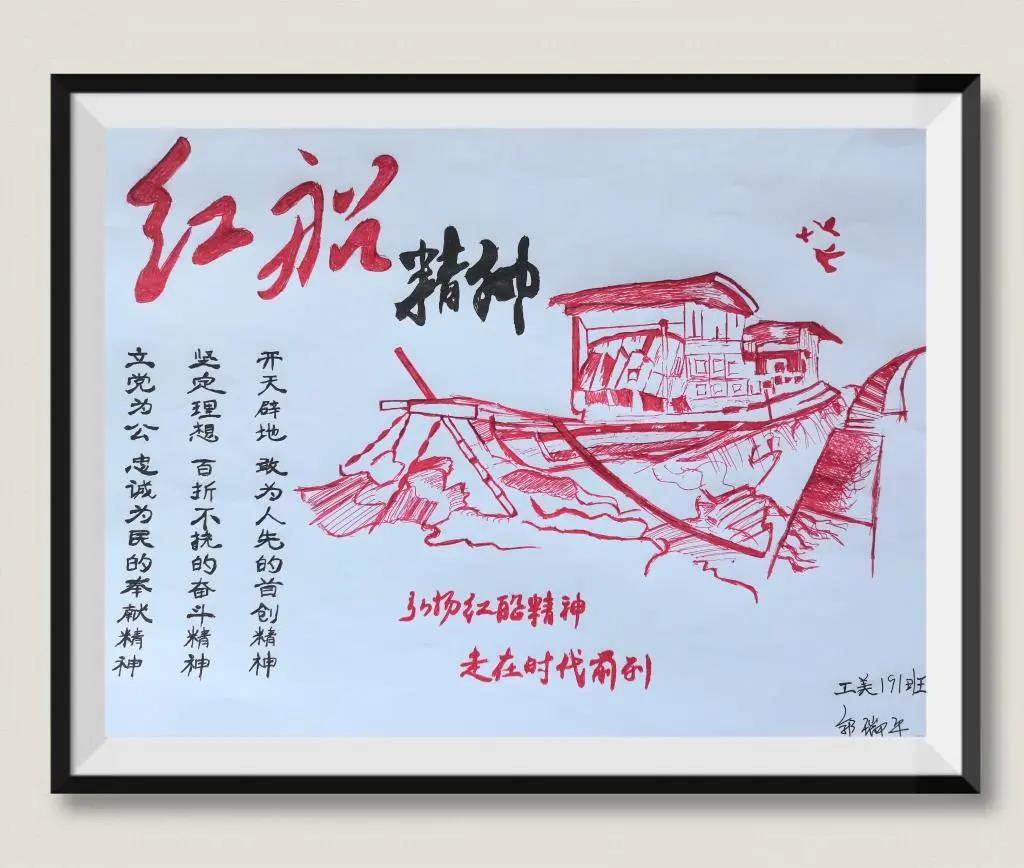 红船
精神
开天辟地 敢为人先的首创精神
坚定理想 百折不挠的奋斗精神
立党为公 忠诚为民的奉献精神
弘扬红船精神
走在时代前列
工美191班